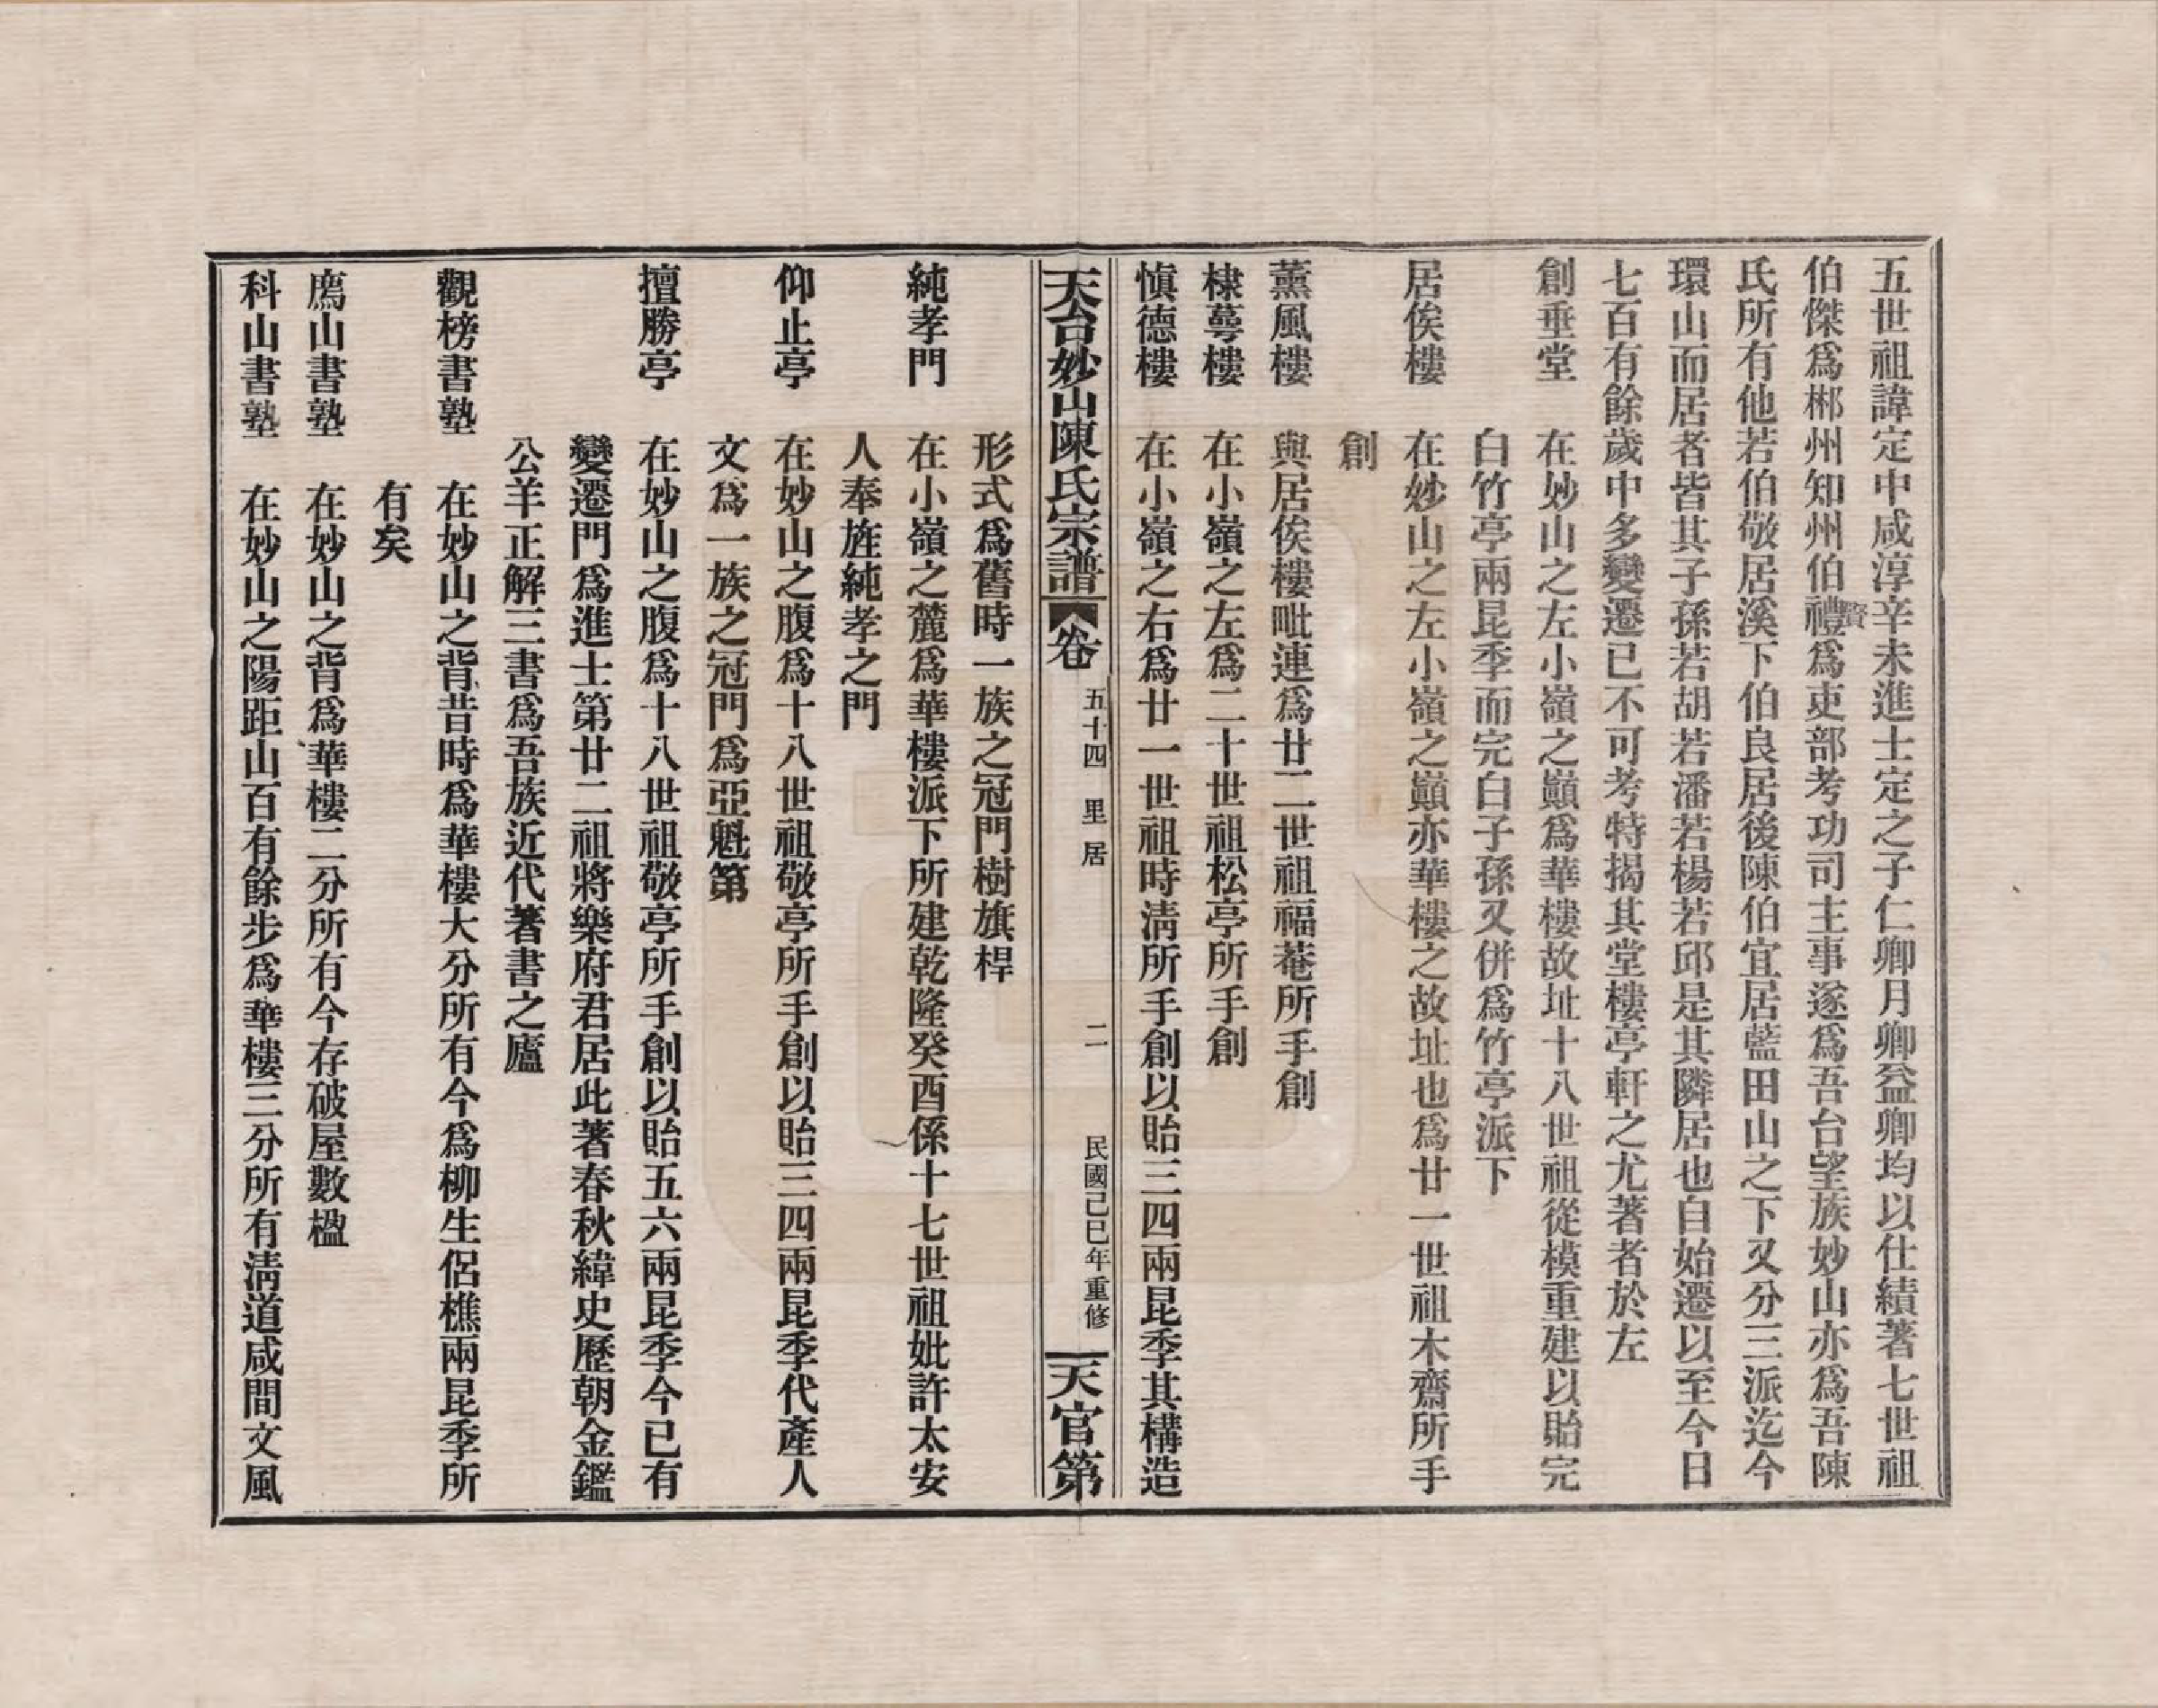 五世祖諱定中咸淳辛未進士定之子仁卿月卿益卿均以仕績著七世祖
伯傑爲郴州知州伯禮爲吏部考功司主事遂爲吾台望族妙山亦爲吾陳
氏所有他若伯敬居溪下伯良居後陳伯宜居藍田山之下又分三派迄今
環山而居者皆其子孫若胡若潘若楊若邱是其隣居也自始遷以至今日
七百有餘歲中多變遷已不可考特揭其堂樓亭軒之尤著者於左
創垂堂　在妙山之左小嶺之巔爲華樓故址十八世祖從模重建以貽完
白竹亭兩昆季而完白子孫又併爲竹亭派下
居俟樓　在妙山之左小嶺之巔亦華樓之故址也爲廿一世祖木齋所手
創
薰風樓　與居俟樓毗連爲廿二世祖福菴所手創
棣萼樓　在小嶺之左爲二十世祖松亭所手創
愼德樓　在小嶺之右爲廿一世祖時淸所手創以貽三四兩昆季其構造
天台妙山陳氏宗譜　卷五十四　里居　二　民國己巳年重修　天官第
形式爲舊時一族之冠門樹旗桿
純孝門　在小嶺之麓爲華樓派下所建乾隆癸酉係十七世祖妣許太安
人奉旌純孝之門
仰止亭　在妙山之腹爲十八世祖敬亭所手創以貽三四兩昆季代產人
文爲一族之冠門爲亞魁第
擅勝亭　在妙山之腹爲十八世祖敬亭所手創以貽五六兩昆季今已有
變遷門爲進士第廿二祖將樂府君居此著春秋緯史歷朝金鑑
公羊正解三書爲吾族近代著書之廬
觀榜書塾　在妙山之背昔時爲華樓大分所有今爲柳生侶樵兩昆季所
有矣
廌山書塾　在妙山之背爲華樓二分所有今存破屋數楹
科山書塾　在妙山之陽距山百有餘步爲華樓三分所有淸道咸間文風